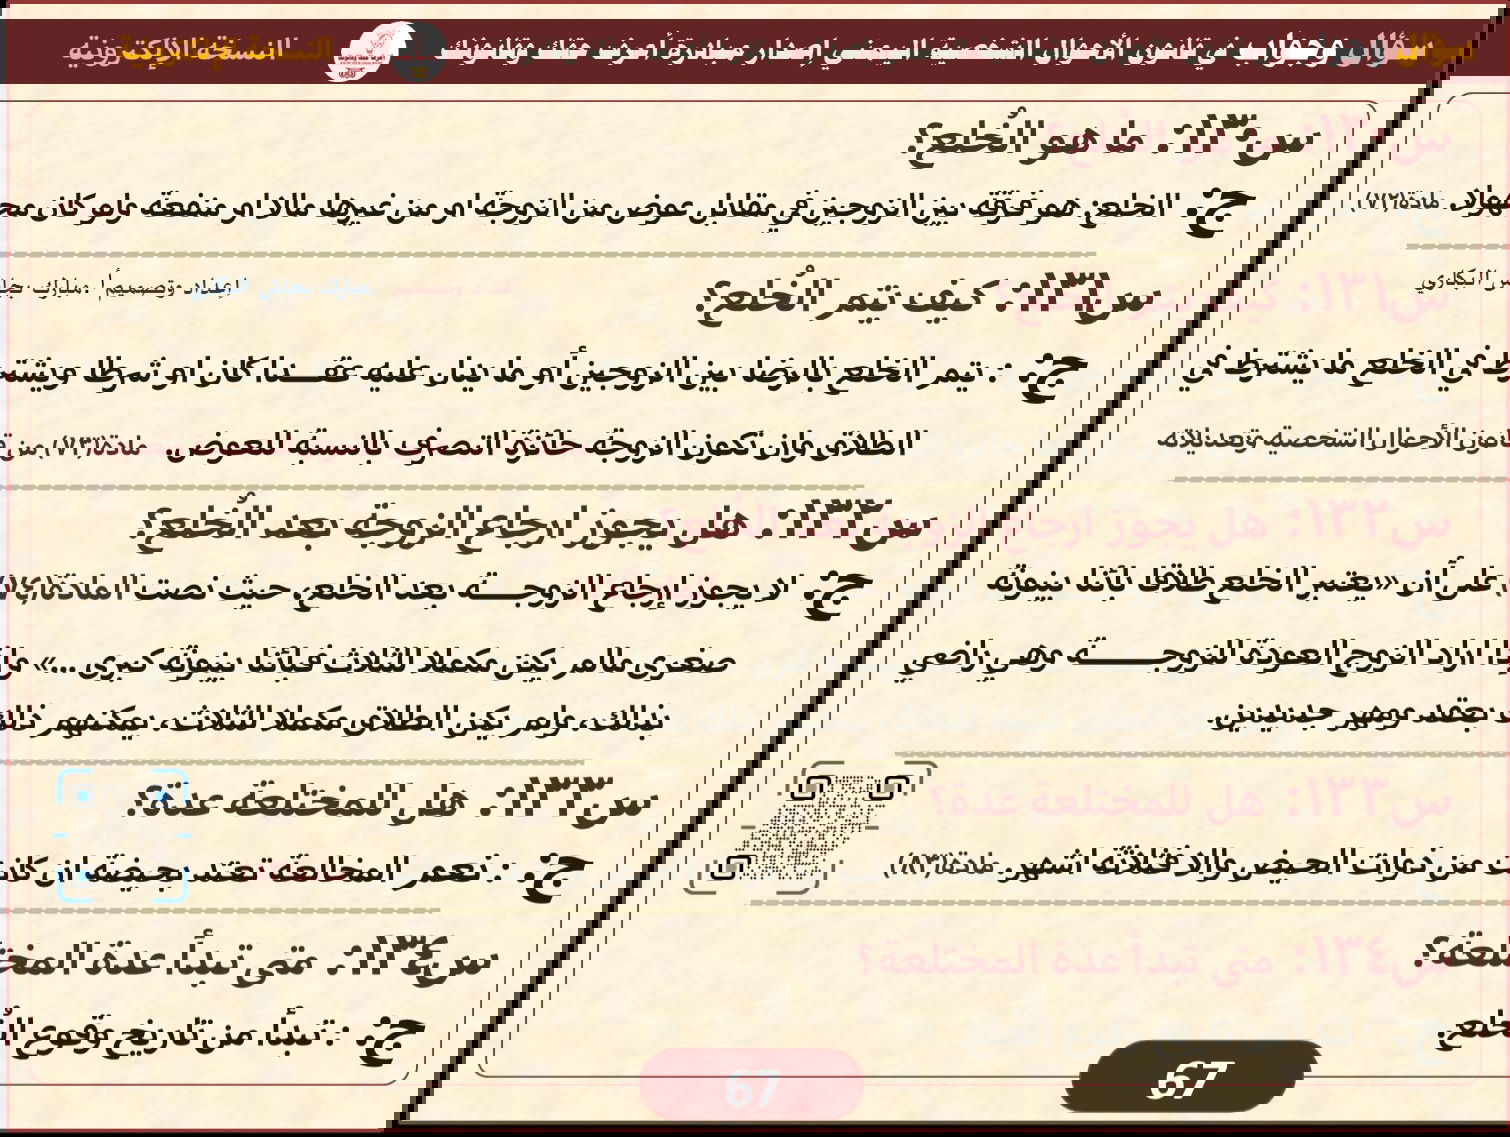 سؤال وجواب في قانون الأحوال الشخصية اليمني إصدار مبادرة أعرف حقك وقانونك
النسخة الإلكترونية
س١٣٠: ما هو الُخلع؟
ج: الخلع: هو فرقة بين الزوجين في مقابل عوض من الزوجة او من غيرها مالا او منفعة ولو كان مجهولا. مادة(٧٢)
إعداد وتصميم أ. مبارك البكاري
س١٣١: كيف يتم الُخلع؟
ج: : يتم الخلع بالرضا بين الزوجين أو ما يدل عليه عقـــدا كان او شرطا ويشترط في الخلع ما يشترط في
الطلاق وان تكون الزوجة حائزة التصرف بالنسبة للعوض. مادة(٧٣) من قانون الأحوال الشخصية وتعديلاته
س١٣٢: هل يجوز ارجاع الزوجة بعد الُخلع؟
ج: لا يجوز إرجاع الزوجـــة بعد الخلع، حيث نصت المادة(٧٤) على أن «يعتبر الخلع طلاقا بائنا بينونة
صغرى مالم يكن مكملا للثلاث فبائنا بينونة كبرى ...» وإذا اراد الزوج العودة للزوجـــــة وهي راضي
بذلك، ولم يكن الطلاق مكملا للثلاث، يمكنهم ذلك بعقد ومهر جديدين.
س١٣٣: هل للمختلعة عدة؟
ج: : نعم المخالعة تعتد بحيضة ان كانت من ذوات الحيض والا فثلاثة اشهر. مادة(٨٣)
س١٣٤: متى تبدأ عدة المختلعة؟
ج: : تبدأ من تاريخ وقوع الُخلع.
67